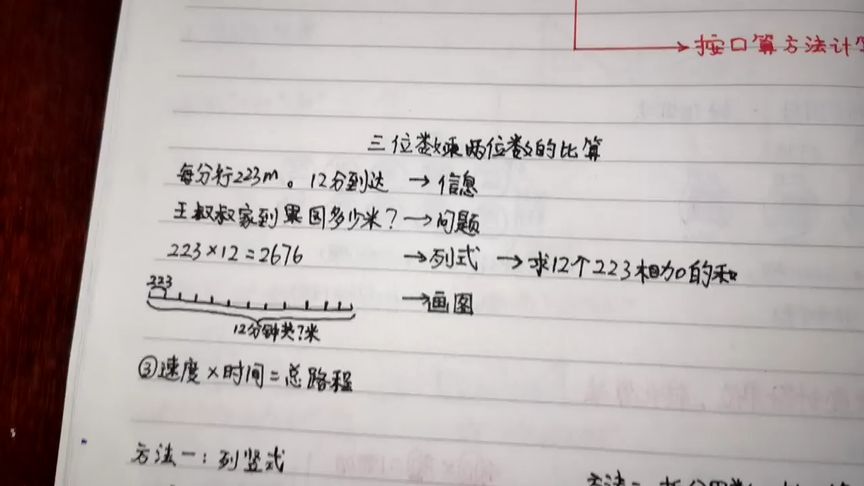 按口算方法计算
三位数乘两位数的比算
每分行223m。12分到达 → 信息
王叔叔家到果园多少米？→问题
223×12=2676 →列式 → 求12个223相加的和
223
→画图
12分钟共?米
③速度×时间=总路程
方法一：列竖式